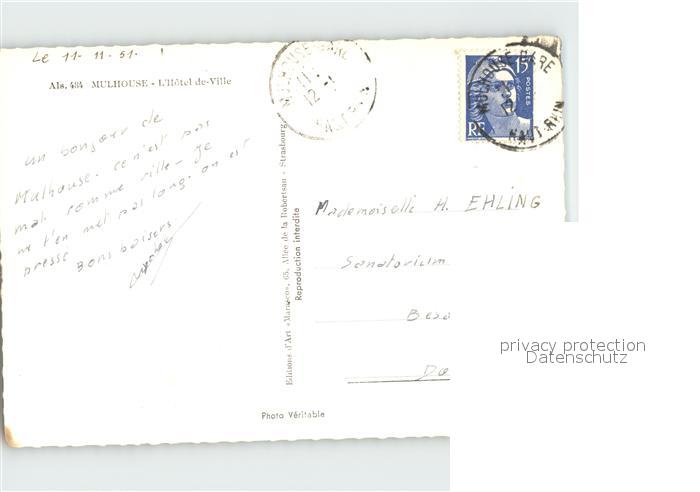 Le 11-11-51.
Als. 484 MULHOUSE - L'Hôtel-de-Ville
un bonjour de
Mulhouse. ce n'est pas
mal comme ville - Je
ne t'en met pas long. on est
pressé
Bons baisers
Editions d'Art «Marasco», 65, Allée de la Robertsau - Strasbourg
Reproduction interdite
MULHOUSE-GARE
12-1
HAUT-RHIN
15F
POSTES
RF
MULHOUSE-GARE
HAUT-RHIN
Mademoiselle H. EHLING
Sanatorium
Photo Véritable
privacy protection
Datenschutz